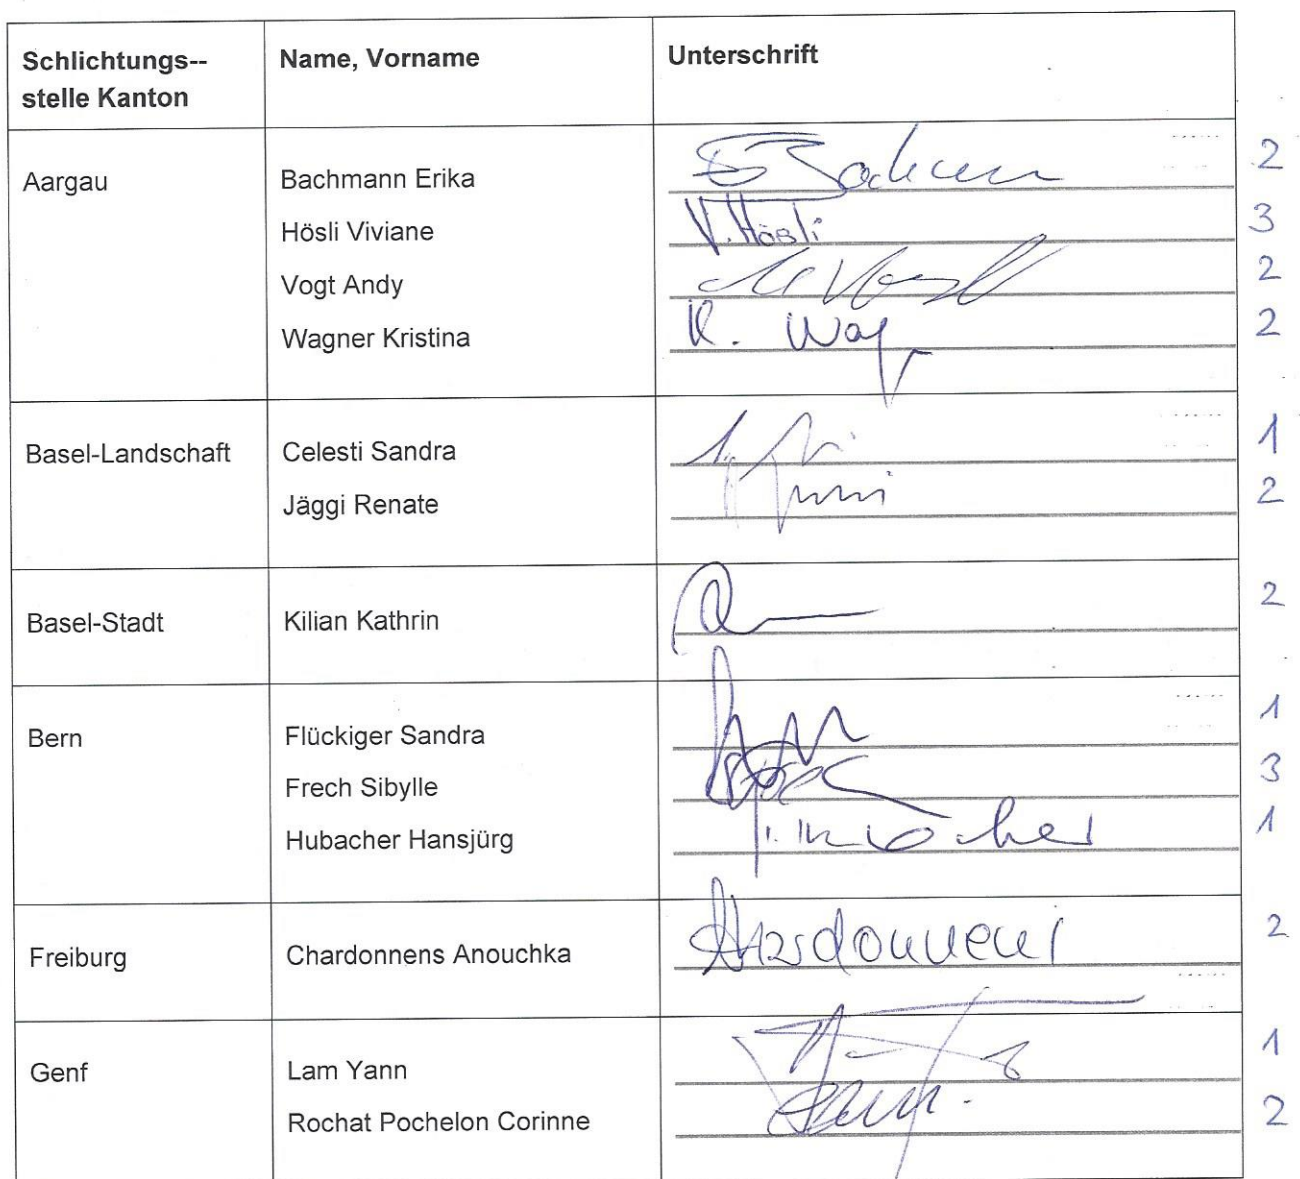 Schlichtungs-- Name, Vorname Unterschrift
stelle Kanton
Aargau Bachmann Erika 2
Hösli Viviane V. Hösli 3
Vogt Andy 2
Wagner Kristina K. 2
Basel-Landschaft Celesti Sandra 1
Jäggi Renate 2
Basel-Stadt Kilian Kathrin 2
Bern Flückiger Sandra 1
Frech Sibylle 3
Hubacher Hansjürg 1
Freiburg Chardonnens Anouchka 2
Genf Lam Yann 1
Rochat Pochelon Corinne 2